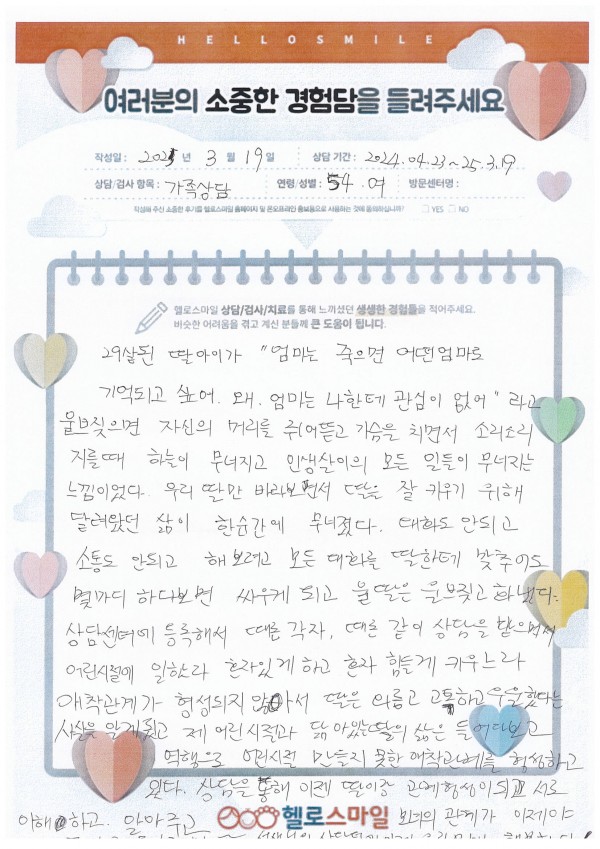 HELLOSMILE
여러분의 소중한 경험담을 들려주세요
작성일 : 2025년 3월 19일 상담 기간 : 2024.04.23~25.3.19
상담/검사 항목 : 가족상담 연령/성별 : 54. 여 방문센터명 :
작성해 주신 소중한 후기를 헬로스마일 홈페이지 및 온오프라인 홍보물으로 사용하는 것에 동의하십니까? □ YES □ NO
헬로스마일 상담/검사/치료를 통해 느끼셨던 생생한 경험들을 적어주세요.
비슷한 어려움을 겪고 계신 분들께 큰 도움이 됩니다.
29살된 딸아이가 "엄마는 죽으면 어떤엄마로
기억되고 싶어. 왜. 엄마는 나한테 관심이 없어" 라고
울브짖으면 자신의 머리를 쥐어뜯고 가슴을 치면서 소리소리
지를때 하늘이 무너지고 인생살이의 모든 일들이 무너지는
느낌이었다. 우리 딸만 바라보면서 딸은 잘 키우기 위해
달려왔던 삶이 한순간에 무너졌다. 대화도 안되고
소통도 안되고 해보려고 모든 대화를 딸한테 맞추어도
몇마디 하다보면 싸우게 되고 울딸은 울브짖고 화냈다.
상담센터에 등록해서 때론 각자, 때론 같이 상담을 받으면서
어린시절에 일하느라 혼자있게 하고 혼자 힘들게 키우느라
애착관계가 형성되지 않아서 딸은 외롭고 고통하고 우울했다는
사실을 알게되고 제 어린시절과 닮아있는 딸의 삶은 들여다보고
역행으로 어린시절 만들지 못한 애착관계를 형성하고
있다. 상담을 통해 이젠 딸이랑 관계형성이 되고 서로
이해하고. 알아주고 헬로스마일 보여의 관계가 이제야